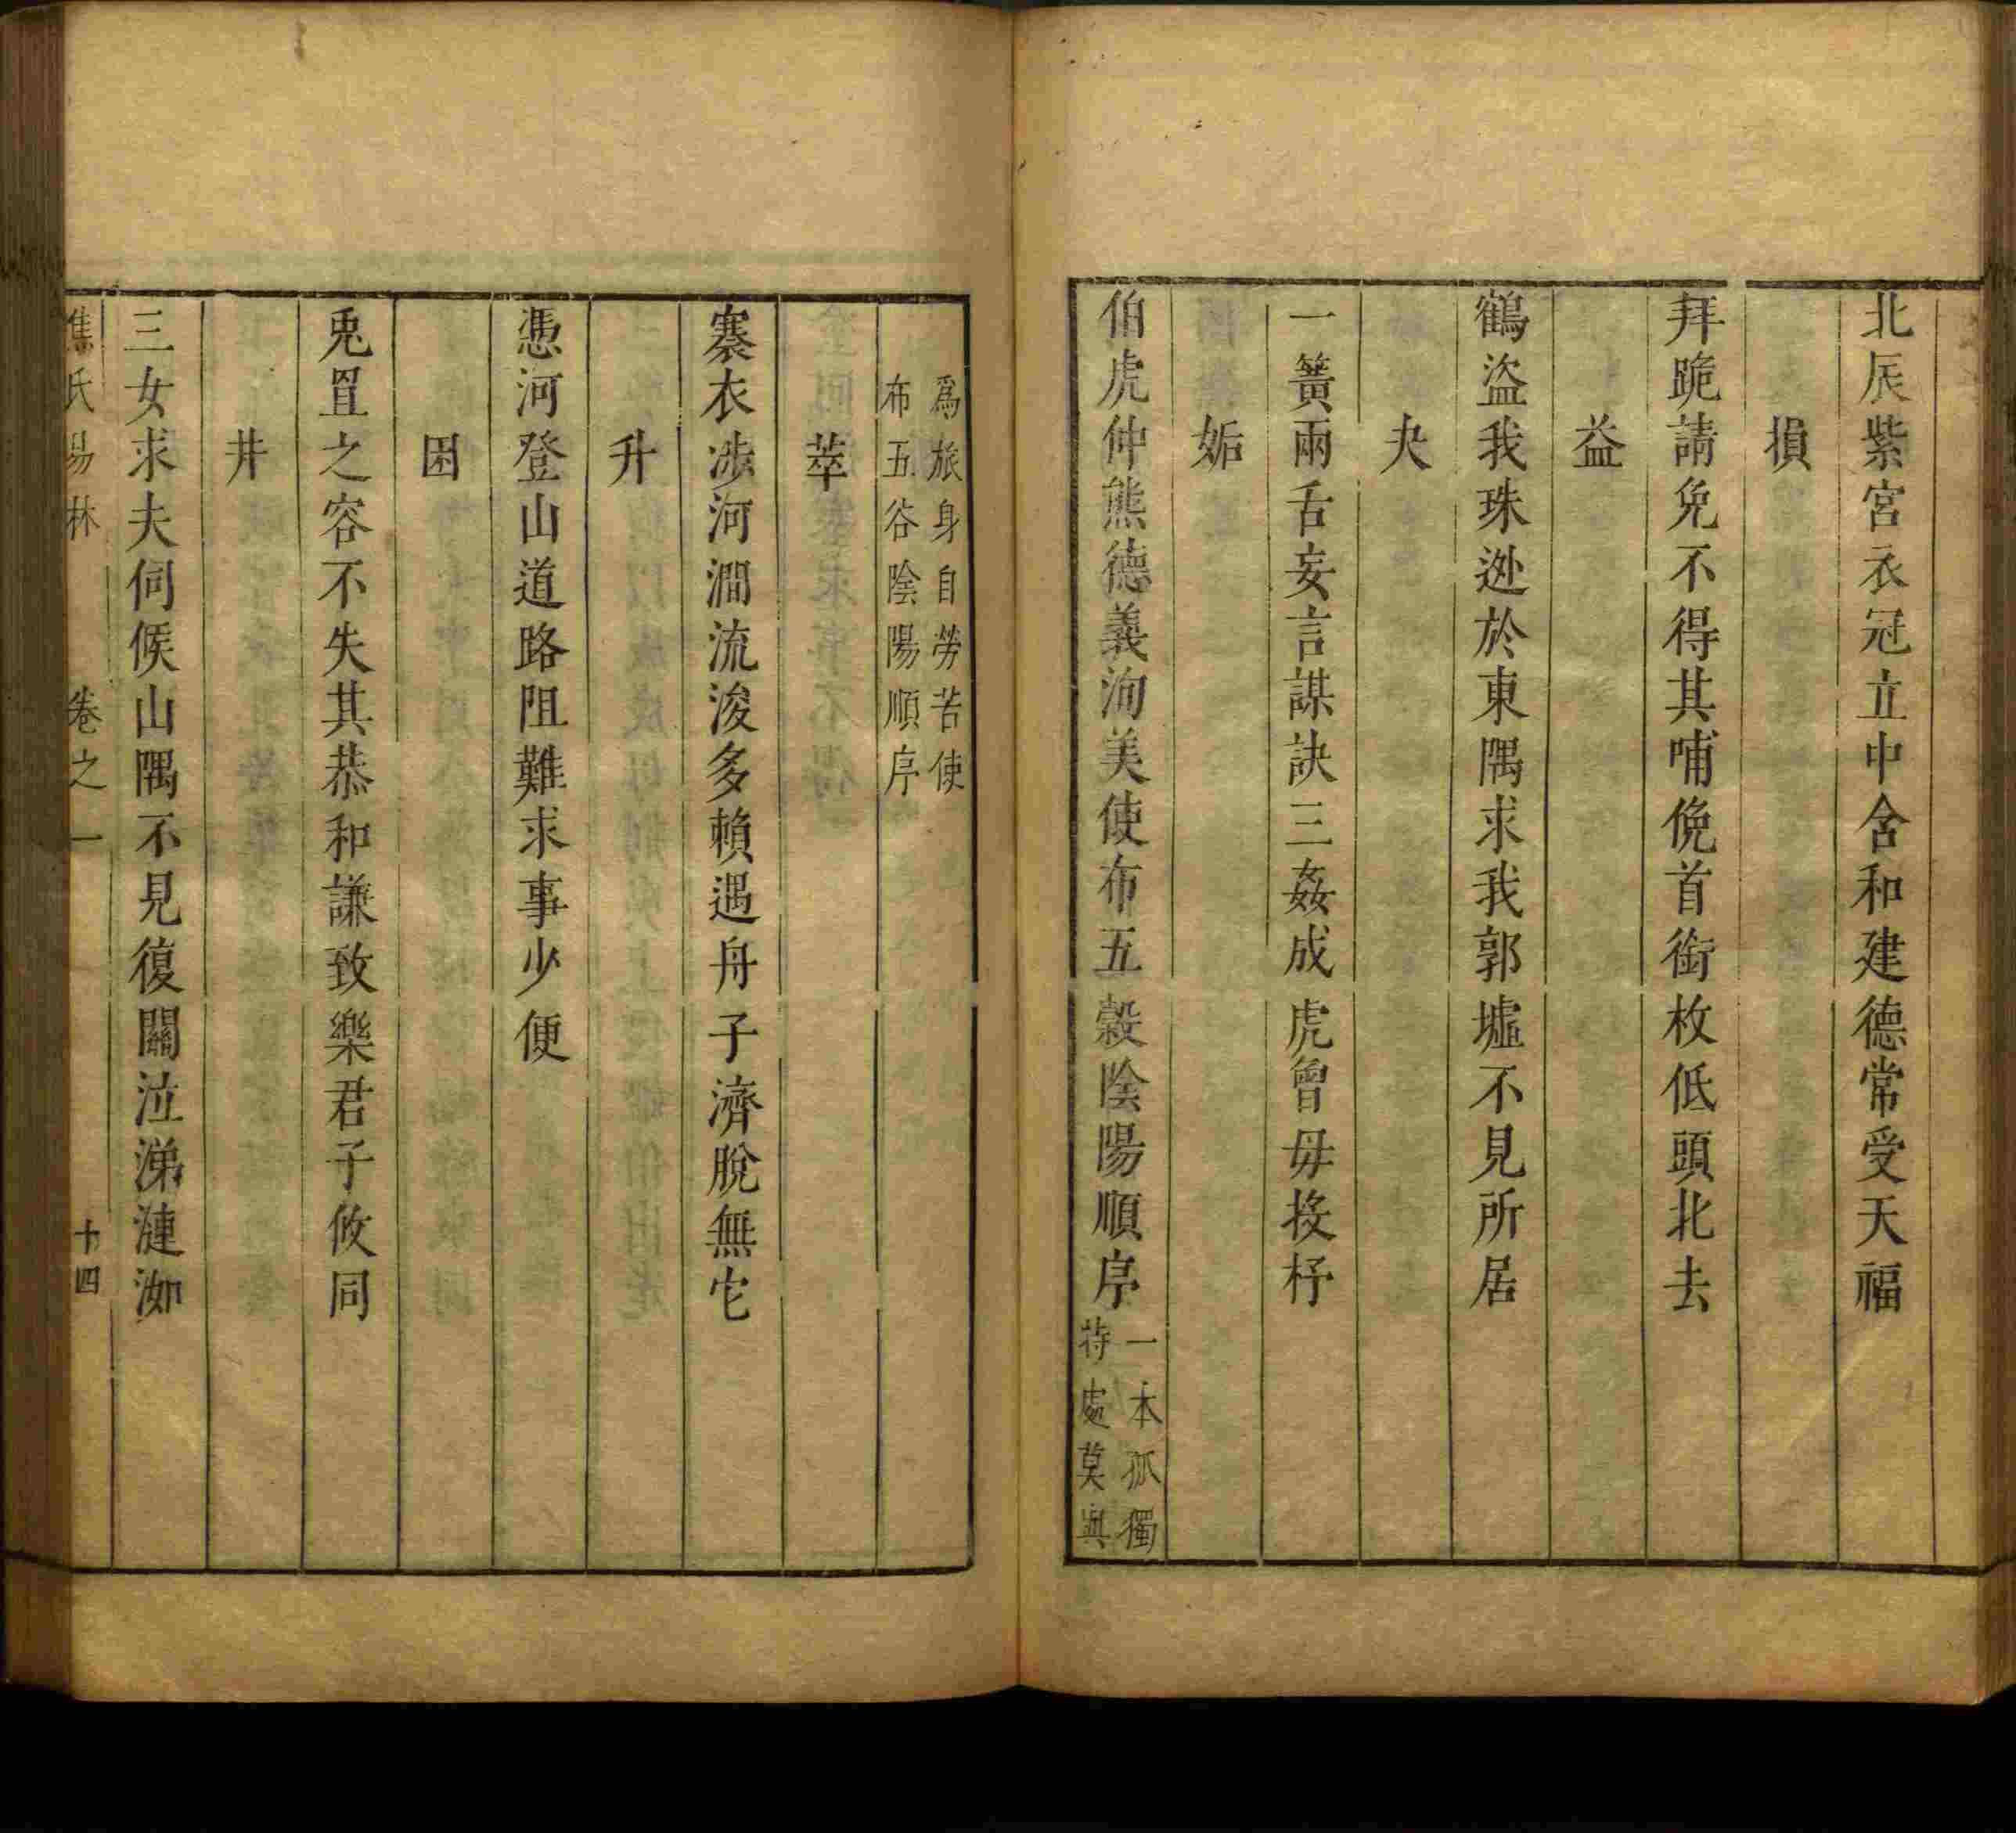 北辰紫宮衣冠立中含和建德常受天福
損
拜跪請免不得其哺俛首銜枚低頭北去
益
鶴盜我珠逃於東隅求我郭墟不見所居
夬
一簧兩舌妄言謀訣三姦成虎曾毋投杼
姤
伯虎仲熊德義洵美使布五穀陰陽順序
一本孤獨
特處莫與
爲旅身自勞苦使
布五谷陰陽順序
萃
褰衣涉河澗流浚多賴遇舟子濟脫無它
升
憑河登山道路阻難求事少便
困
兎罝之容不失其恭和謙致樂君子攸同
井
三女求夫伺候山隅不見復關泣涕漣洳
焦氏易林 卷之一 十四